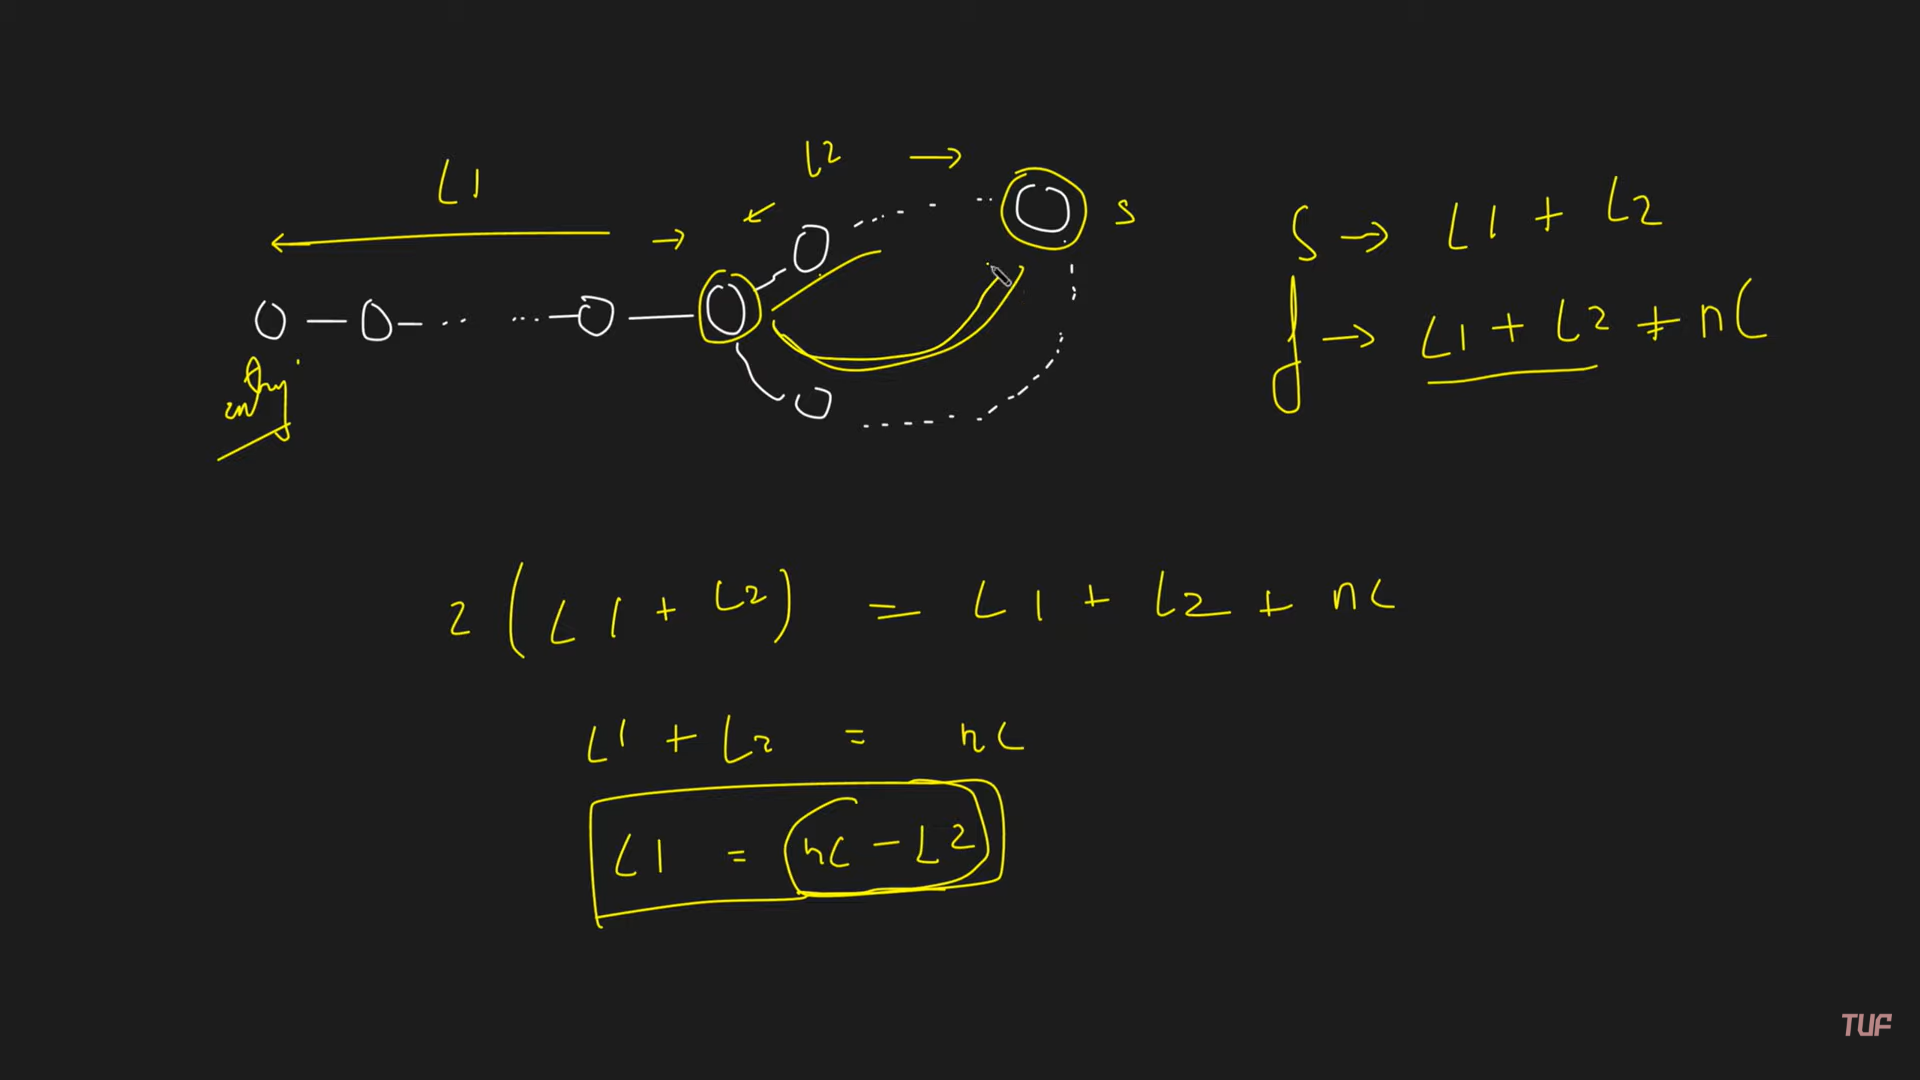 L1
L2
S
entry
S → L1 + L2
f → L1 + L2 + nC
2(L1 + L2) = L1 + L2 + nC
L1 + L2 = nC
L1 = nC - L2
TUF